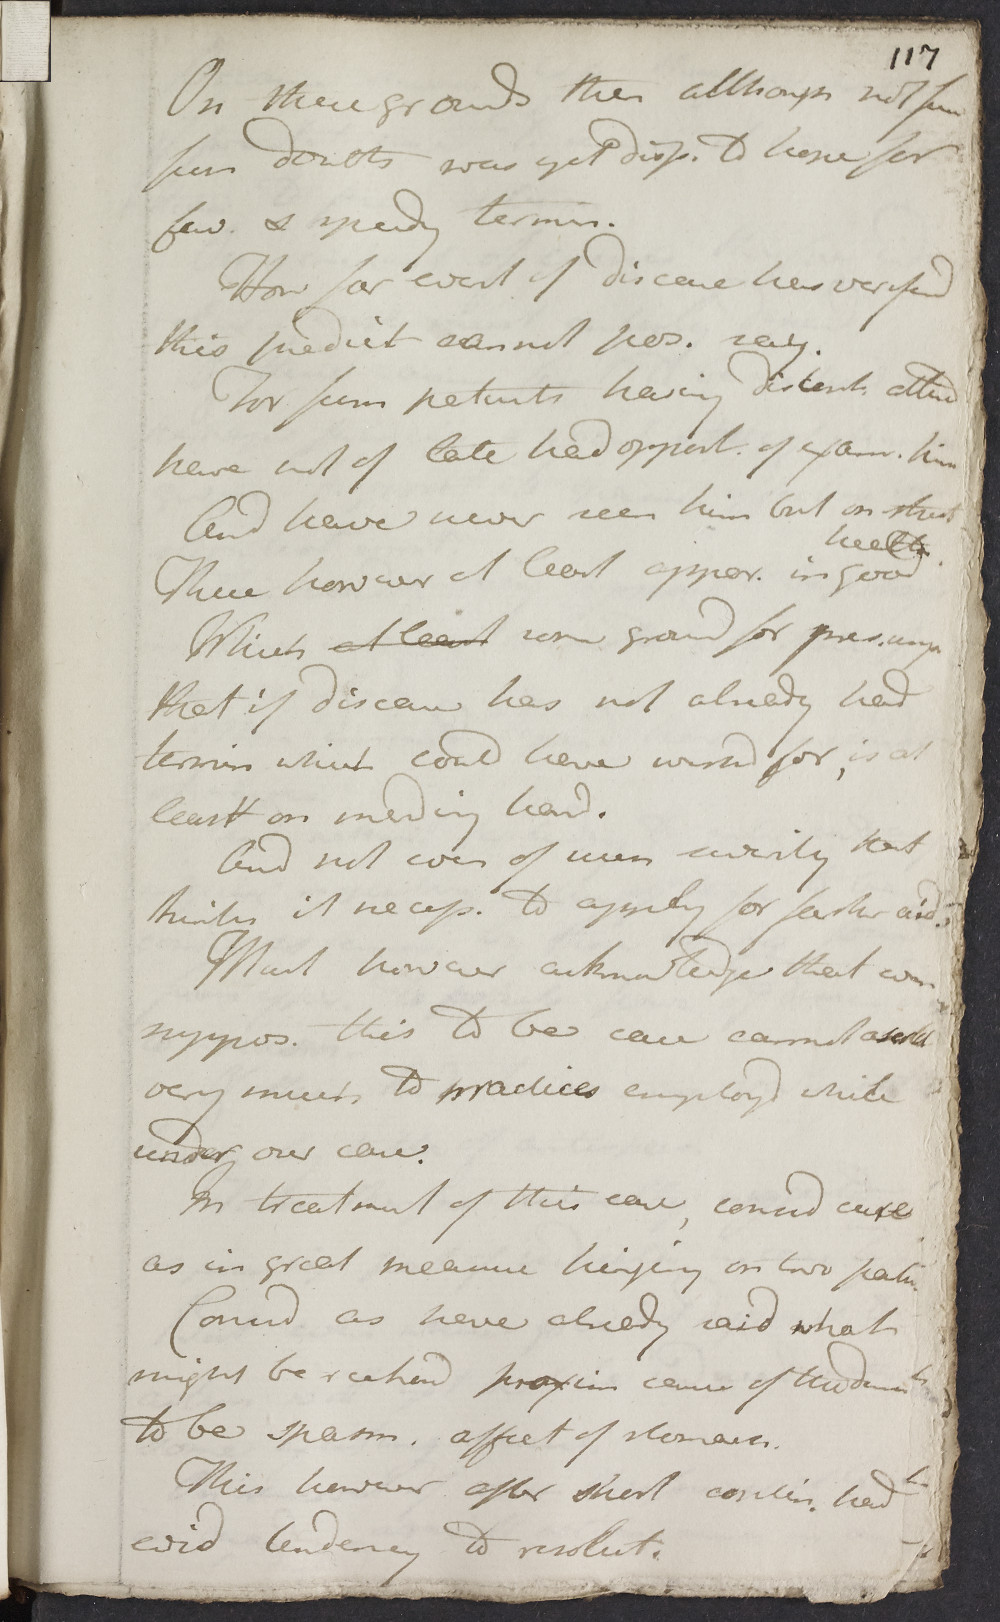 117
On these grounds then although not from
from doubts was yet disp. to hope for
fav. & speedy termin.
How far event of disease has verified
this predict cannot pos. say.
For from patients having discont. attend
have not of late had opport. of exam. him
And have never seen him but on street
health.
There however at least appear. in good
Which at least some ground for presump
that if disease has not already had
termin which could have wished for, is at
least on mending hand.
And not even of such severity that
thinks it necess. to apply for farther aid.
Must however acknowledge that even
suppos. this to be case cannot ascribe
very much to practices employd while
under our care.
In treatment of this case, consid cure
as in great measure hinging on two
Consid as have already said what
might be reckond proxim cause of
to be spasm. affect of stomach.
This however after short contin. had
evid tendency to resolut.